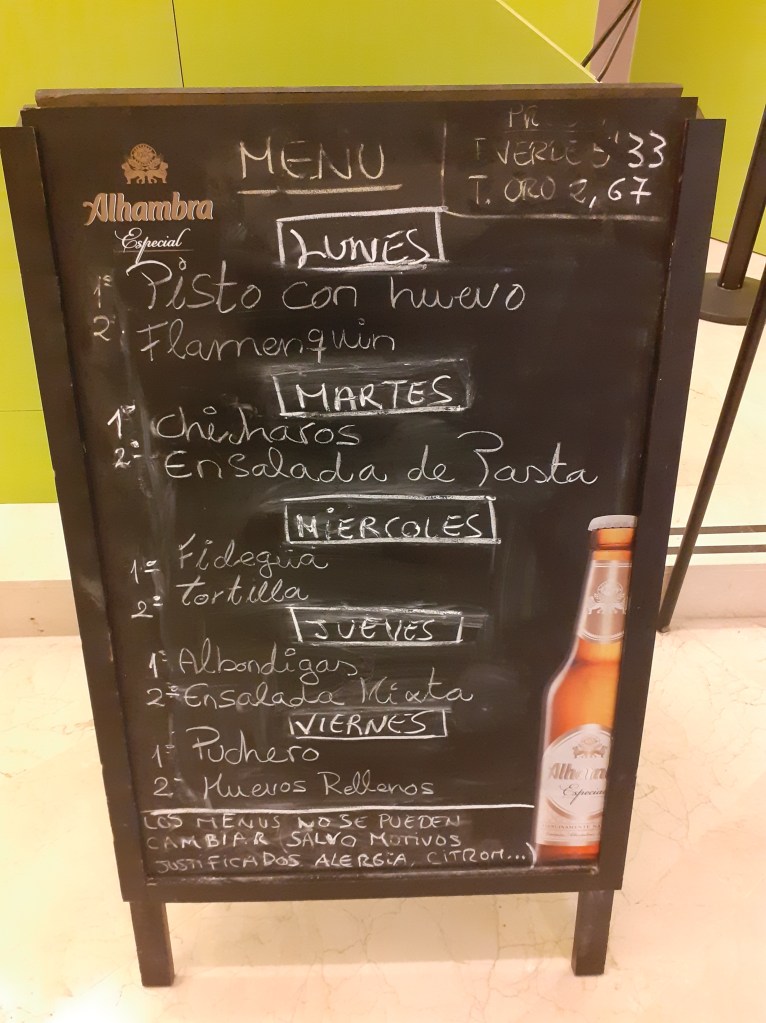 MENU
T. VERDE 5'33
T. ORO 2,67
Alhambra
Especial
LUNES
1º Pisto con huevo
2º Flamenquin
MARTES
1º chicharos
2º Ensalada de Pasta
MIERCOLES
1º Fidegua
2º Tortilla
JUEVES
1º Albondigas
2º Ensalada Mixta
VIERNES
1º Puchero
2º Huevos Rellenos
LOS MENUS NO SE PUEDEN
CAMBIAR (SALVO MOTIVOS
JUSTIFICADOS ALERGIA, CITROM...)
Alhambra
Especial